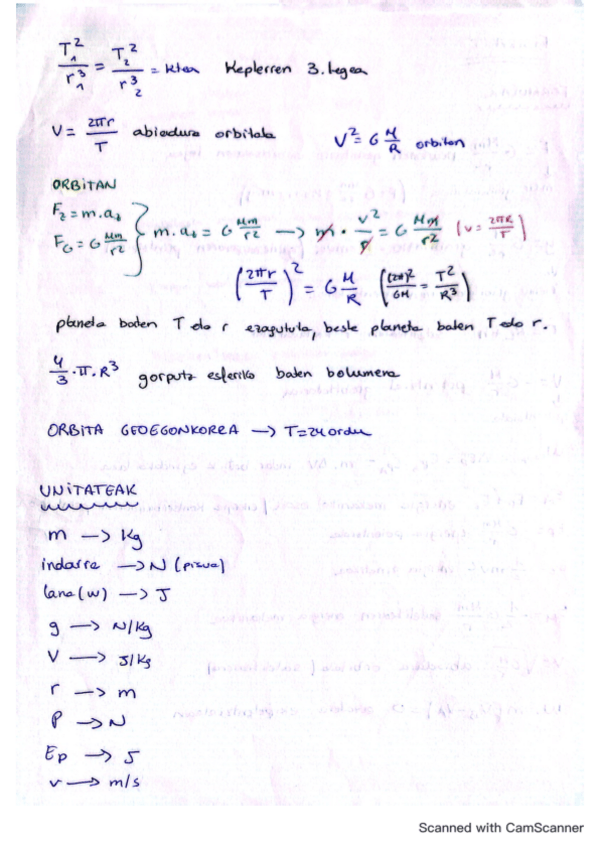 T₁²/r₁³ = T₂²/r₂³ = ktea Keplerren 3. legea
V = 2πr/T abiadura orbitala V² = G M/R orbitan
ORBITAN
F₂ = m.a₂
F_G = G Mm/r² } m.a₂ = G Mm/r² → m · v²/r = G Mm/r² (v = 2πR/T)
(2πr/T)² = G M/R ((2π)²/GM = T²/R³)
planeta baten T edo r ezagututa, beste planeta baten T edo r.
4/3 · π · R³ gorputz esferiko baten bolumena
ORBITA GEOEGONKORRA → T=24 ordu
UNITATEAK
m → kg
indarra → N (pisua)
lana (w) → J
g → N/kg
V → J/kg
r → m
P → N
Ep → J
v → m/s
Scanned with CamScanner